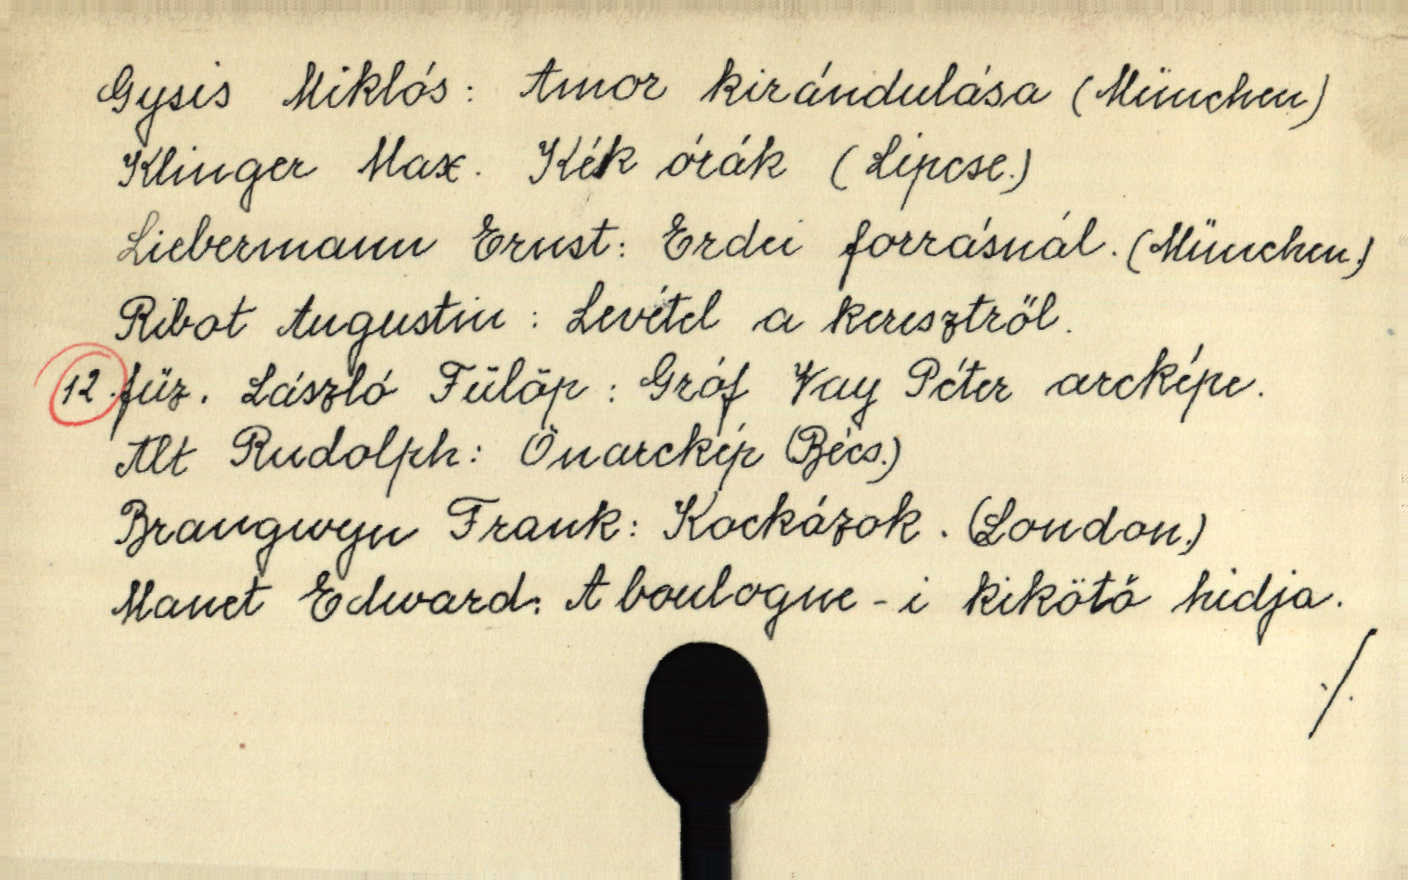 Gysis Miklós: Amor kirándulása (München)
Klinger Max. Kék órák (Lipcse.)
Liebermann Ernst: Erdei forrásnál. (München.)
Ribot Augustin: Levétel a keresztről.
12. füz. László Fülöp: Gróf Vay Péter arcképe.
Alt Rudolph: Önarckép (Bécs.)
Brangwyn Frank: Kockázok. (London.)
Manet Edward: A boulogne-i kikötő hidja.
./.